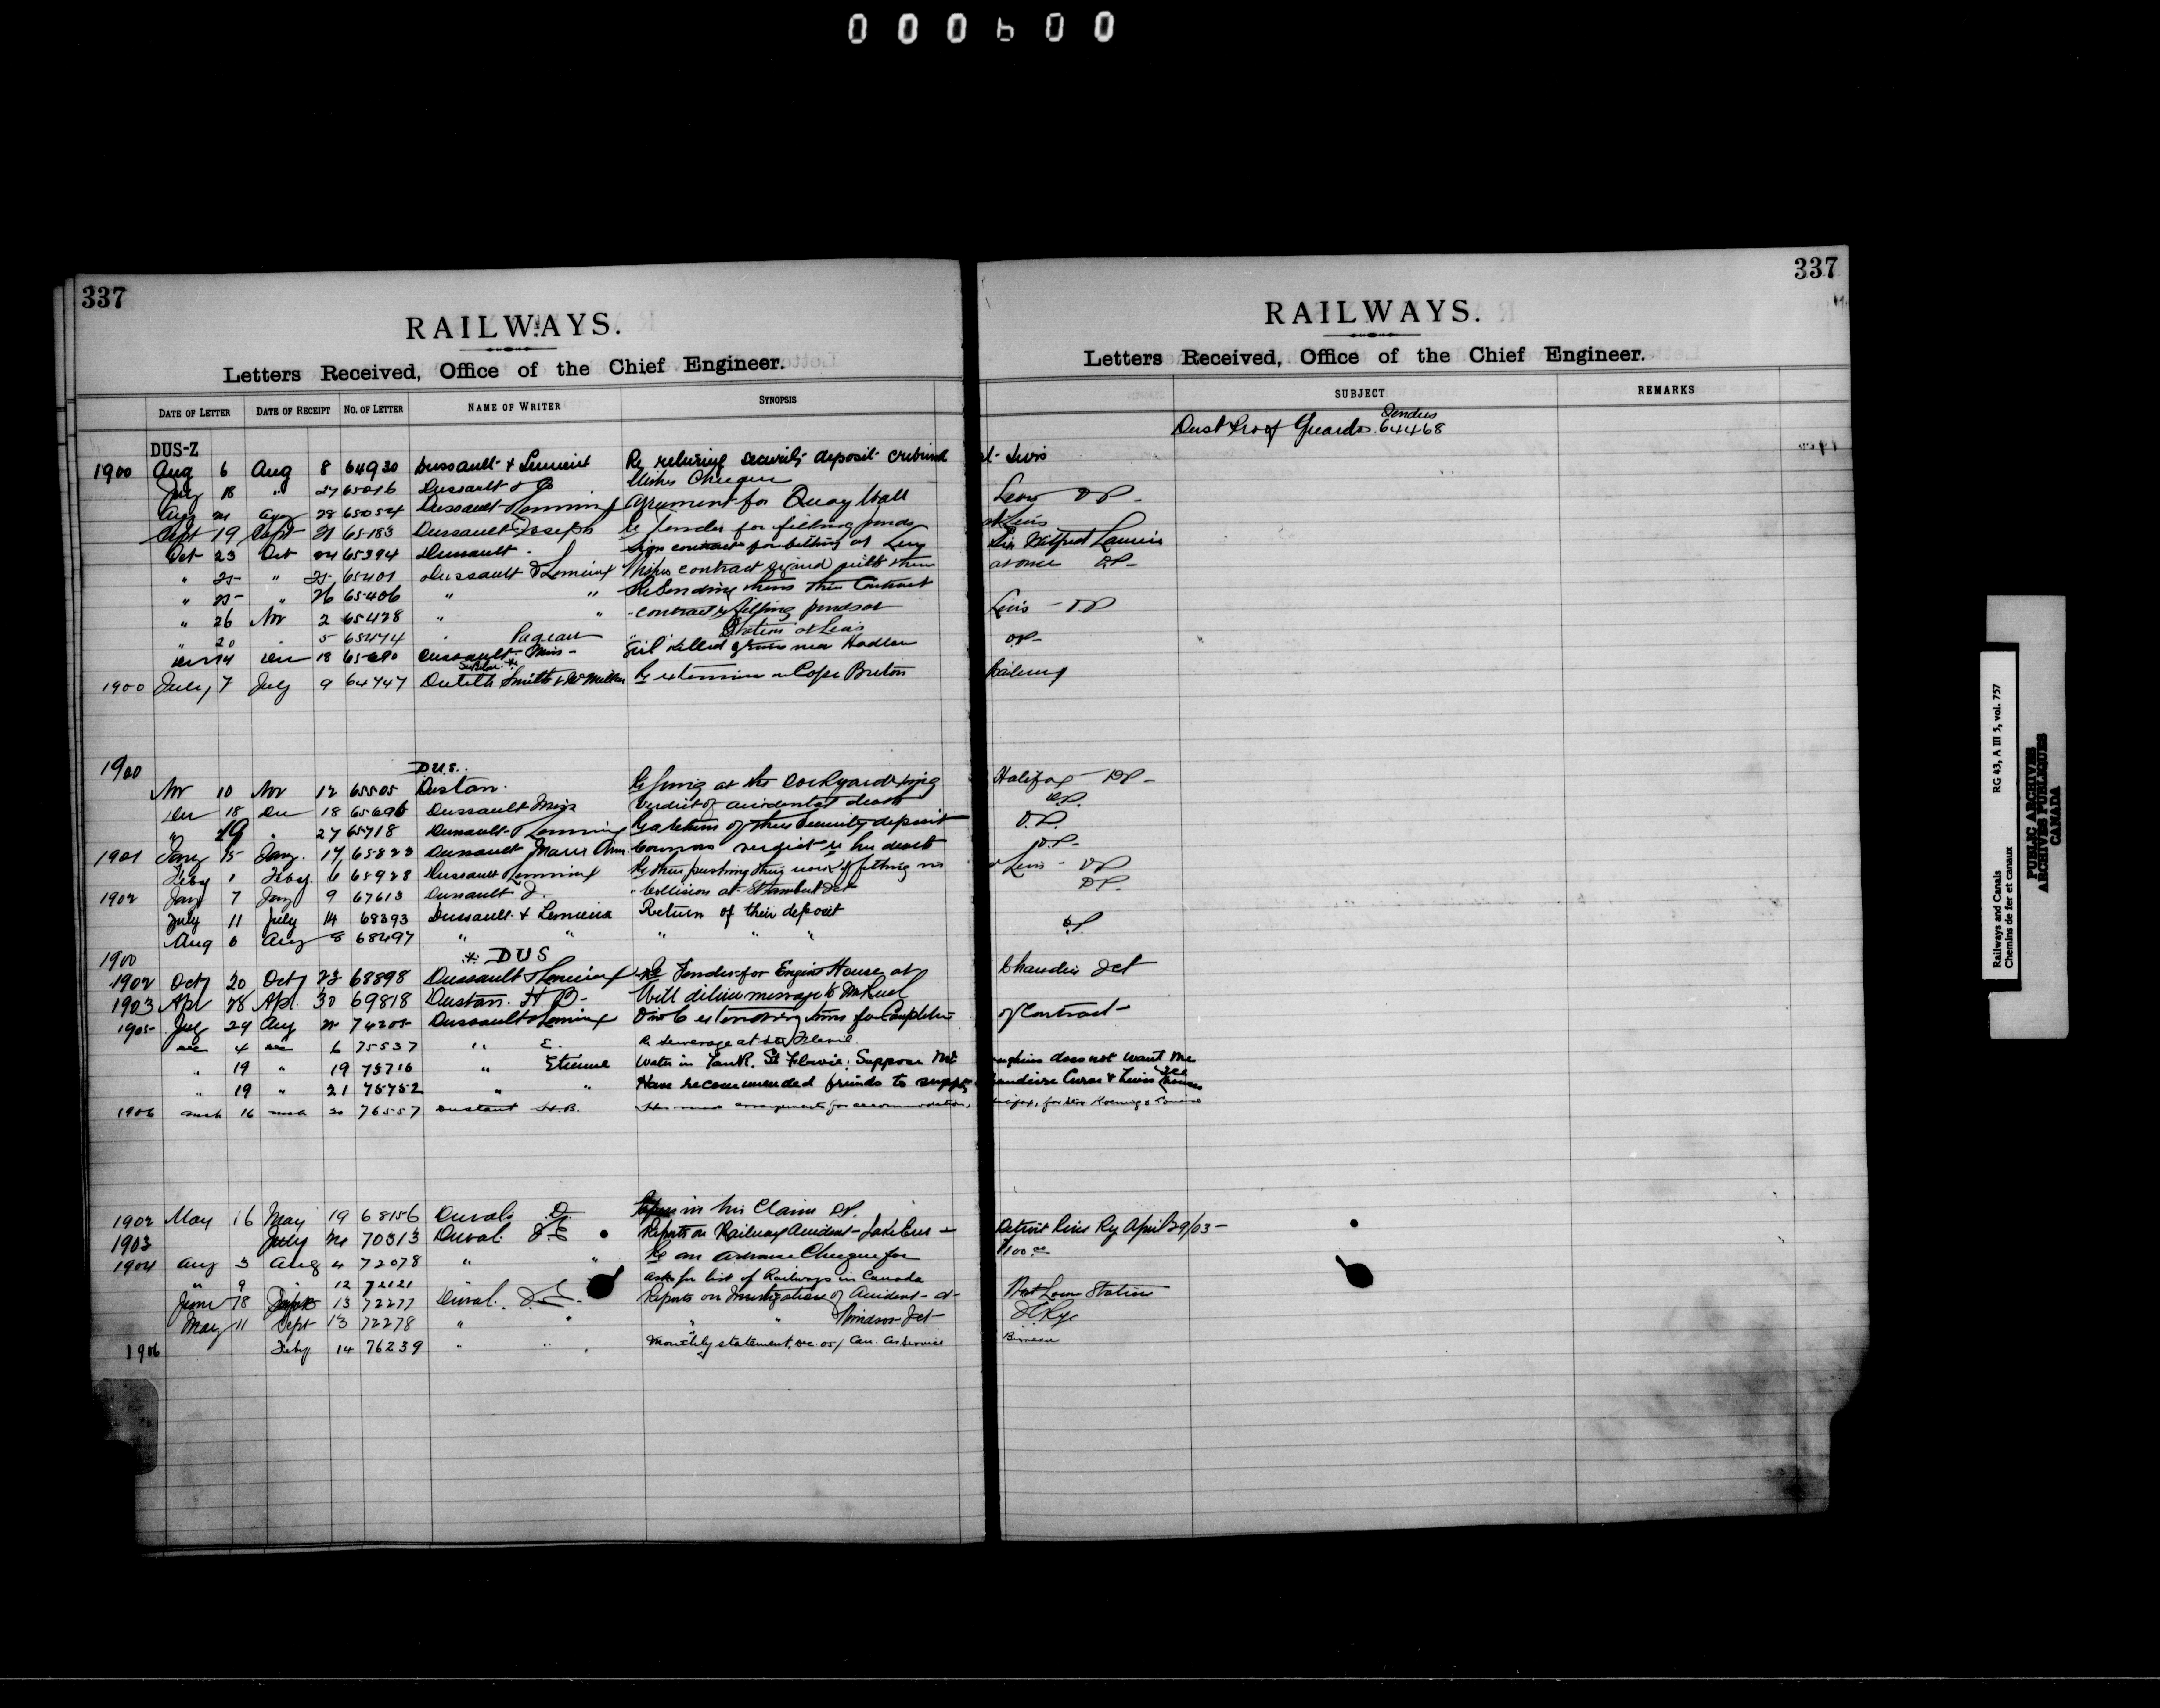 000600
337
RAILWAYS.
Letters Received, Office of the Chief Engineer.
DATE OF LETTER DATE OF RECEIPT NO. OF LETTER NAME OF WRITER SYNOPSIS
DUS-Z
1900 Aug 6 Aug 8 64930 Dussault & Lemieux Re security deposit cribwork
July 18 " 27 65016 Dussault & Co Wishes Cheque
Aug 21 Aug 28 65054 Dussault & Lemieux Agreement for Quay Wall
Sept 19 Sept 21 65183 Dussault Joseph Re Tender for filling ponds
Oct 23 Oct 24 65394 Dussault Sign contract for filling at Levy
" 25 " 25 65401 Dussault & Lemieux Wishes contract signed with them
" 25 " 26 65406 " " Re Sending them their Contract
" 26 Nov 2 65428 " " contract filling ponds at
" 20 " 5 65474 " Station at Levis
Dec 14 Dec 18 65680 Dussault Miss Girl killed near Hadlow
1900 July 7 July 9 64747 Smith & McMillan Re extension Cape Breton
1900
DUS.
Nov 10 Nov 12 65505 Dustan. Re at the Dockyard
Dec 18 Dec 18 65696 Dussault Miss Verdict of accidental death
" 19 " 27 65718 Dussault & Lemieux Re return of their security deposit
1901 Jany 15 Jany. 17 65823 Dussault Marie Ann. Coroners verdict re her death
Feby 1 Feby. 6 65928 Dussault & Lemieux Re their pushing their work of filling
1902 Jany 7 Jany 9 67613 Dussault J. Collision at Jct
July 11 July 14 68393 Dussault & Lemieux Return of their deposit
Aug 6 Aug 8 68497 " " " " "
1900 * DUS
1902 Octy 20 Octy 23 68898 Dussault & Lemieux Re Tender for Engine House at
1903 Apl 28 Apl. 30 69818 Dustan. H. B. Will deliver message to
1905 July 24 Aug 74205 Dussault & Lemieux O in C extending time for Completion
Dec 4 Dec 6 75537 " E. Re Sewerage at Ste Flavie.
" 19 " 19 75716 " Etienne Water in Tank. St Flavie; Suppose Mr
" 19 " 21 75752 " " Have recommended friends to supply
1906 mch 16 mch 20 76557 Dustant H.B. Has made arrangements for accommodation,
1902 May 16 May 19 68156 Duval D. his Claim DP.
1903 July 70313 Duval. J.E. Reports on Railway Accident Lake Erie
1904 Aug 3 Aug 4 72078 " " Re an Advance Cheque for
" 9 " 12 72121 " Asks for list of Railways in Canada
June 18 Sept 13 72277 Duval. J.E. Reports on Investigation of Accident at
May 11 Sept 13 72278 " " " " Windsor Jct
1906 Feby 14 76239 " " Monthly statement, Dec. 05, Can. Car Service
337
RAILWAYS.
Letters Received, Office of the Chief Engineer.
SUBJECT REMARKS
Dust Proof Guards. Tenders 64468
at Levis
Levis DP
at Levis
Sir Wilfred Laurier
at once DP
Levis DP
DP
Railway
Halifax DP
DP.
D.P.
D.P.
at Levis DP
DP.
DP
Chaudiere Jct
of Contract
does not want me
Chaudiere Curve & Levis
Halifax, for Mr
Detroit River Ry April 29/03
$100.00
Station
Bureau
Railways and Canals RG 43, A III 5, vol. 757
Chemins de fer et canaux
PUBLIC ARCHIVES
ARCHIVES PUBLIQUES
CANADA